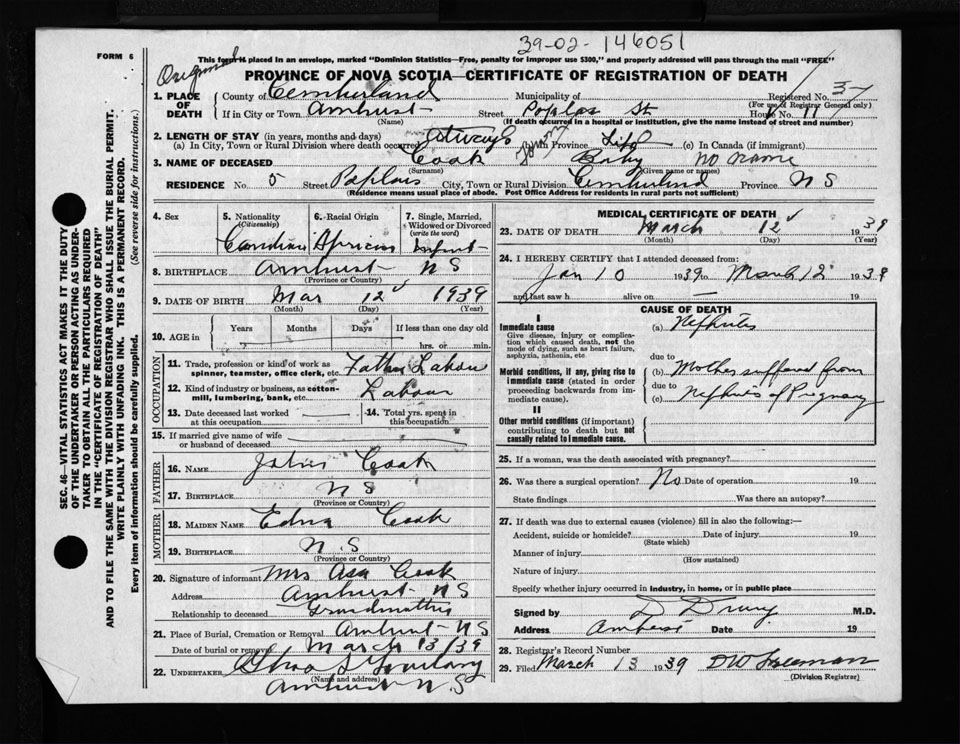 39-02-146051
FORM 6
Original
This form is placed in an envelope, marked "Dominion Statistics—Free, penalty for improper use $300," and properly addressed will pass through the mail "FREE"
PROVINCE OF NOVA SCOTIA—CERTIFICATE OF REGISTRATION OF DEATH
1. PLACE OF DEATH
County of Cumberland Municipality of Registered No. 37
(For use of Registrar General only)
If in City or Town Amherst Street Poplar St House No. 11
(Name) (If death occurred in a hospital or institution, give the name instead of street and number)
2. LENGTH OF STAY (in years, months and days)
(a) In City, Town or Rural Division where death occurred (b) in Province Life (c) In Canada (if immigrant)
3. NAME OF DECEASED Cook Baby no name
(Surname) (Given name or names)
RESIDENCE No. 5 Street Poplar City, Town or Rural Division Cumberland Province N S
(Residence means usual place of abode. Post Office Address for residents in rural parts not sufficient)
4. Sex 5. Nationality (Citizenship) 6. Racial Origin 7. Single, Married, Widowed or Divorced (write the word)
Canadian African Infant
8. BIRTHPLACE Amherst N S
(Province or Country)
9. DATE OF BIRTH Mar 12 1939
(Month) (Day) (Year)
10. AGE in Years Months Days If less than one day old
hrs. or min.
OCCUPATION
11. Trade, profession or kind of work as spinner, teamster, office clerk, etc. Father Labour
12. Kind of industry or business, as cotton-mill, lumbering, bank, etc. Labour
13. Date deceased last worked at this occupation 14. Total yrs. spent in this occupation
15. If married give name of wife or husband of deceased
FATHER
16. NAME Cook
17. BIRTHPLACE N S
(Province or Country)
MOTHER
18. MAIDEN NAME Edna Cook
19. BIRTHPLACE N.S
(Province or Country)
20. Signature of informant Mrs Asa Cook
Address Amherst N S
Relationship to deceased Grandmother
21. Place of Burial, Cremation or Removal Amherst N S
Date of burial or removal March 13/39
22. UNDERTAKER
(Name and address)
Amherst N.S
MEDICAL CERTIFICATE OF DEATH
23. DATE OF DEATH March 12 1939
(Month) (Day) (Year)
24. I HEREBY CERTIFY that I attended deceased from:
Jan 10 1939 to March 12 1939
and last saw h alive on — 19
CAUSE OF DEATH
I
Immediate cause (a) Nephritis
Give disease, injury or complication which caused death, not the mode of dying, such as heart failure, asphyxia, asthenia, etc
due to
Morbid conditions, if any, giving rise to immediate cause (stated in order proceeding backwards from immediate cause).
(b) Mother suffered from
due to
(c) Nephritis of Pregnancy
II
Other morbid conditions (if important) contributing to death but not causally related to immediate cause.
25. If a woman, was the death associated with pregnancy?
26. Was there a surgical operation? No Date of operation 19
State findings Was there an autopsy?
27. If death was due to external causes (violence) fill in also the following:—
Accident, suicide or homicide? Date of injury 19
(State which)
Manner of injury
(How sustained)
Nature of injury
Specify whether injury occurred in industry, in home, or in public place
Signed by D Drury M.D.
Address Amherst Date 19
28. Registrar's Record Number
29. Filed March 13 1939 Freeman
(Division Registrar)
SEC. 46—VITAL STATISTICS ACT MAKES IT THE DUTY
OF THE UNDERTAKER OR PERSON ACTING AS UNDER-
TAKER TO OBTAIN ALL THE PARTICULARS REQUIRED
IN THE "CERTIFICATE OF REGISTRATION OF DEATH"
AND TO FILE THE SAME WITH THE DIVISION REGISTRAR WHO SHALL ISSUE THE BURIAL PERMIT.
WRITE PLAINLY WITH UNFADING INK. THIS IS A PERMANENT RECORD.
Every item of information should be carefully supplied. (See reverse side for instructions).